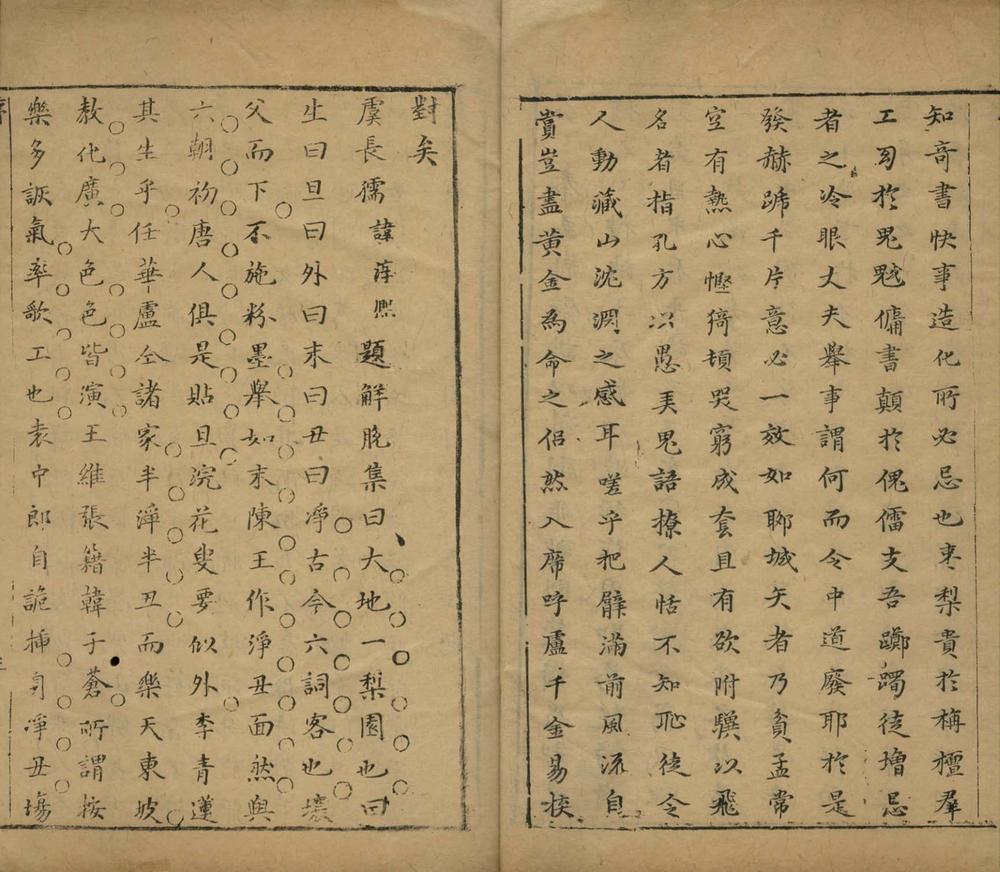 知奇書快事造化所必忌也枣梨貴於稱檀羣
工劣於鬼魃傭書顛於傀儡支吾躑躅徒增忌
者之冷眼丈夫舉事謂何而令中道廢耶於是
發赫蹏千片意必一效如聊城矢者乃貧孟常
空有熱心慳猗頓哭窮成套且有欲附驥以飛
名者指孔方以愚美鬼語撩人恬不知恥徒令
人動藏山沈淵之感耳嗟乎把臂滿前風流自
賞豈盡黃金為命之侶然入席呼盧千金易擲
對矣
虞長孺諱淳熙題解脫集曰大地一梨園也曰
生曰旦曰外曰末曰丑曰淨古今六詞客也壤
父而下不施粉墨舉如末陳王作淨丑面然與
六朝初唐人俱是貼旦浣花叟要似外李青蓮
其生乎任華盧仝諸家半淨半丑而樂天東坡
教化廣大色色皆演王維張籍韓子蒼所謂按
樂多詼氣率歌工也袁中郎自詭插身淨丑場